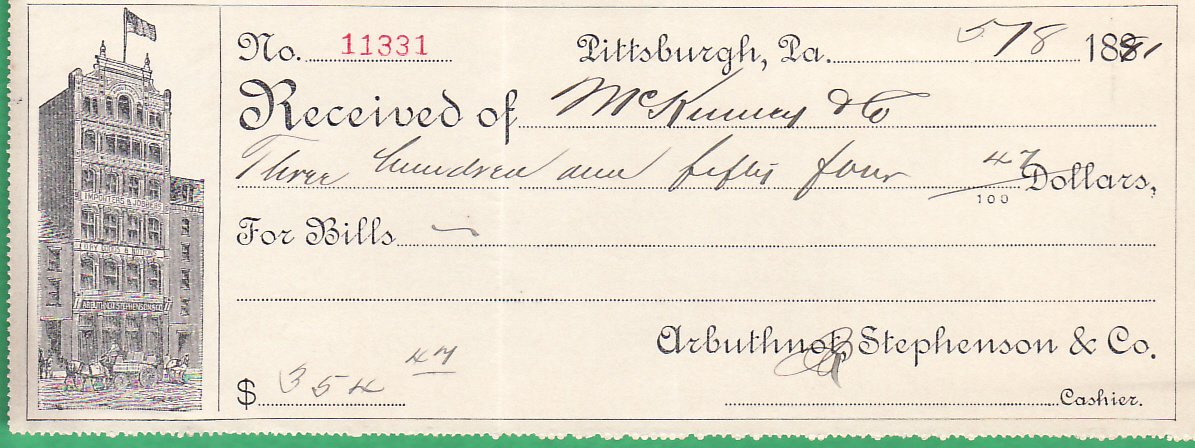 No. 11331 Pittsburgh, Pa. 5/8 1881
Received of McKinney & Co
Three hundred and fifty four 47/100 Dollars,
For Bills
Arbuthnot, Stephenson & Co.
$ 354 47
Cashier.
IMPORTERS & JOBBERS
DRY GOODS & NOTIONS
ARBUTHNOT STEPHENSON & CO